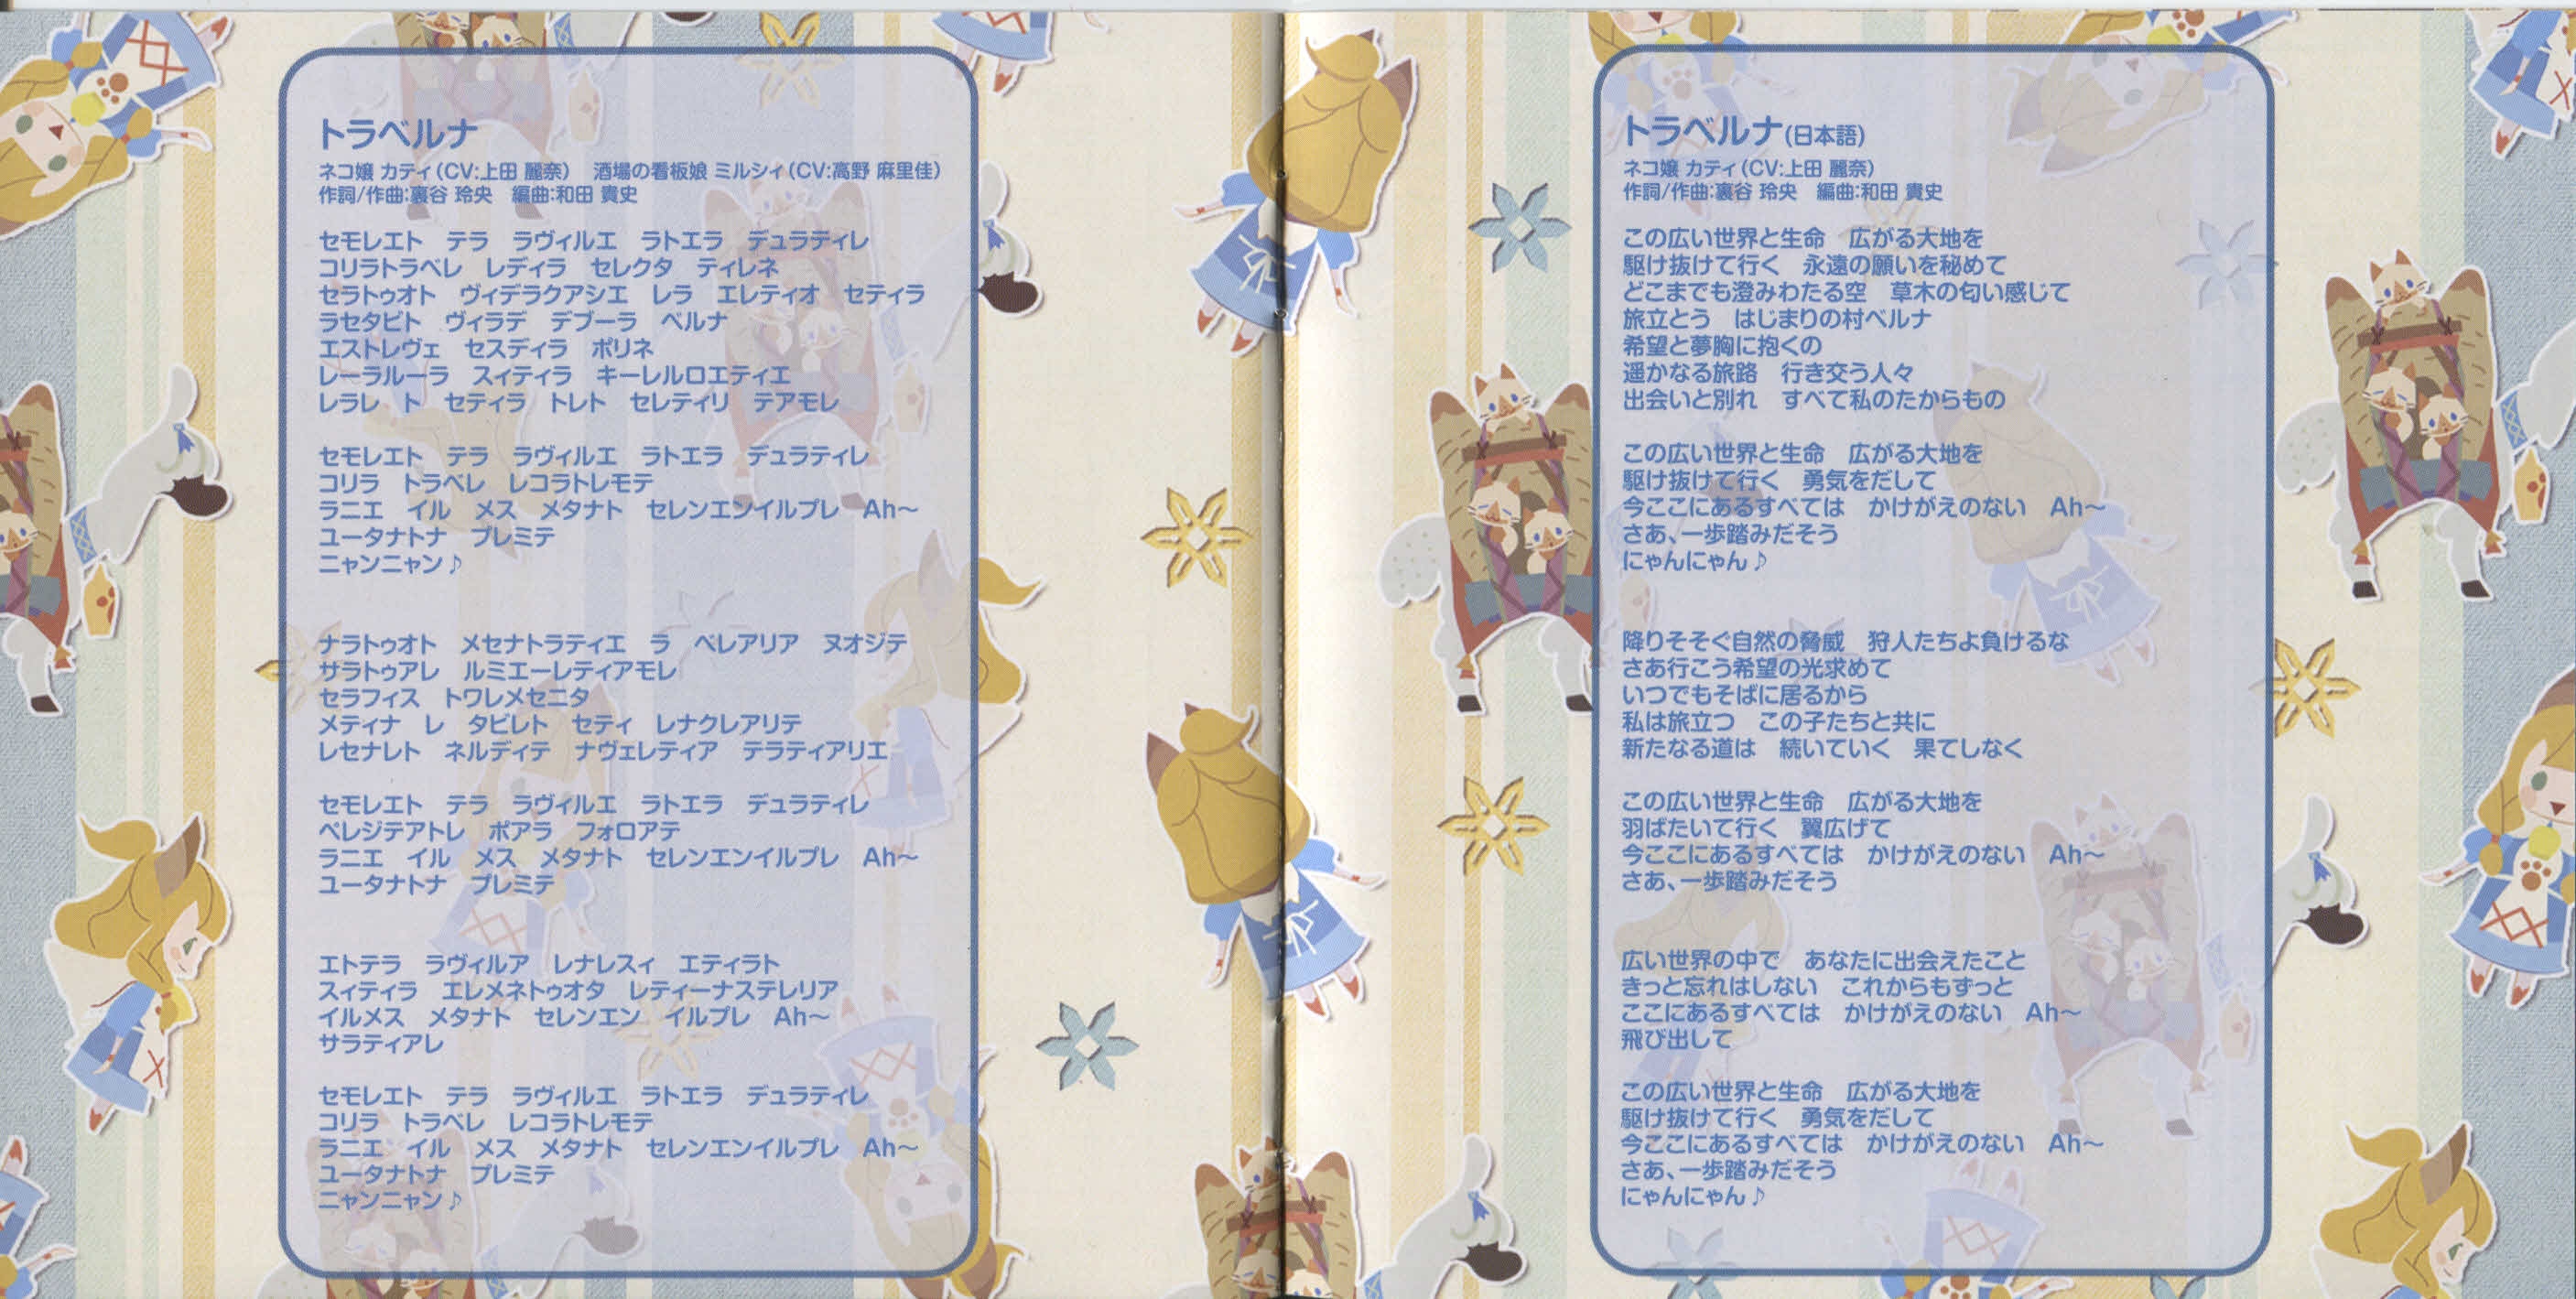 トラベルナ
ネコ嬢 カティ(CV:上田 麗奈)　酒場の看板娘 ミルシィ(CV:高野 麻里佳)
作詞/作曲:裏谷 玲央　編曲:和田 貴史
セモレエト　テラ　ラヴィルエ　ラトエラ　デュラティレ
コリラトラベレ　レディラ　セレクタ　ティレネ
セラトゥオト　ヴィデラクアシエ　レラ　エレティオ　セティラ
ラセタビト　ヴィラデ　デブーラ　ベルナ
エストレヴェ　セスディラ　ポリネ
レーラルーラ　スィティラ　キーレルロエティエ
レラレ　ト　セティラ　トレト　セレティリ　テアモレ
セモレエト　テラ　ラヴィルエ　ラトエラ　デュラティレ
コリラ　トラベレ　レコラトレモテ
ラニエ　イル　メス　メタナト　セレンエンイルプレ　Ah～
ユータナトナ　プレミテ
ニャンニャン♪
ナラトゥオト　メセナトラティエ　ラ　ベレアリア　ヌオジテ
サラトゥアレ　ルミエーレティアモレ
セラフィス　トワレメセニタ
メティナ　レ　タビレト　セティ　レナクレアリテ
レセナレト　ネルディテ　ナヴェレティア　テラティアリエ
セモレエト　テラ　ラヴィルエ　ラトエラ　デュラティレ
ペレジテアトレ　ポアラ　フォロアテ
ラニエ　イル　メス　メタナト　セレンエンイルプレ　Ah～
ユータナトナ　プレミテ
エトテラ　ラヴィルア　レナレスィ　エティラト
スィティラ　エレメネトゥオタ　レティーナステレリア
イルメス　メタナト　セレンエン　イルプレ　Ah～
サラティアレ
セモレエト　テラ　ラヴィルエ　ラトエラ　デュラティレ
コリラ　トラベレ　レコラトレモテ
ラニエ　イル　メス　メタナト　セレンエンイルプレ　Ah～
ユータナトナ　プレミテ
ニャンニャン♪
トラベルナ(日本語)
ネコ嬢 カティ(CV:上田 麗奈)
作詞/作曲:裏谷 玲央　編曲:和田 貴史
この広い世界と生命　広がる大地を
駆け抜けて行く　永遠の願いを秘めて
どこまでも澄みわたる空　草木の匂い感じて
旅立とう　はじまりの村ベルナ
希望と夢胸に抱くの
遥かなる旅路　行き交う人々
出会いと別れ　すべて私のたからもの
この広い世界と生命　広がる大地を
駆け抜けて行く　勇気をだして
今ここにあるすべては　かけがえのない　Ah～
さあ、一歩踏みだそう
にゃんにゃん♪
降りそそぐ自然の脅威　狩人たちよ負けるな
さあ行こう希望の光求めて
いつでもそばに居るから
私は旅立つ　この子たちと共に
新たなる道は　続いていく　果てしなく
この広い世界と生命　広がる大地を
羽ばたいて行く　翼広げて
今ここにあるすべては　かけがえのない　Ah～
さあ、一歩踏みだそう
広い世界の中で　あなたに出会えたこと
きっと忘れはしない　これからもずっと
ここにあるすべては　かけがえのない　Ah～
飛び出して
この広い世界と生命　広がる大地を
駆け抜けて行く　勇気をだして
今ここにあるすべては　かけがえのない　Ah～
さあ、一歩踏みだそう
にゃんにゃん♪